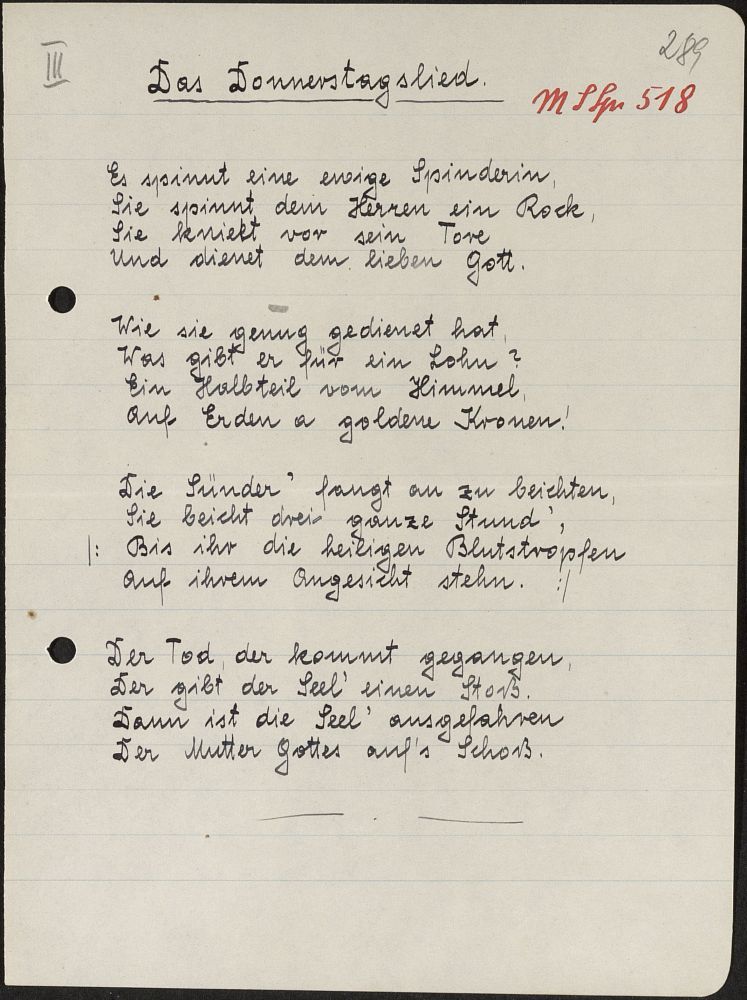 III
289
Das Donnerstagslied.
M S Spr 518
Es spinnt eine ewige Spinderin,
Sie spinnt dem Herren ein Rock,
Sie kniekt vor sein Tore
Und dienet dem lieben Gott.
Wie sie genug gedienet hat,
Was gibt er für ein Lohn?
Ein Halbteil vom Himmel,
Auf Erden a goldene Kronen!
Die Sünder' fangt an zu beichten,
Sie beicht drei ganze Stund',
|: Bis ihr die heiligen Blutstropfen
Auf ihrem Angesicht stehn. :|
Der Tod, der kommt gegangen,
Der gibt der Seel' einen Stoß.
Dann ist die Seel' ausgefahren
Der Mutter Gottes auf's Schoß.